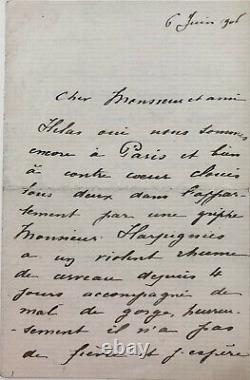 6 Juin 906
Cher Monsieur et ami
Helas oui nous sommes
encore à Paris et bien
à contre coeur cloués
tous deux dans l'appar-
tement par une grippe
Monsieur Harpignies
a un violent rhume
de cerveau depuis 4
jours accompagné de
mal de gorge, heureu-
sement il n'a pas
de fievre et j'espère